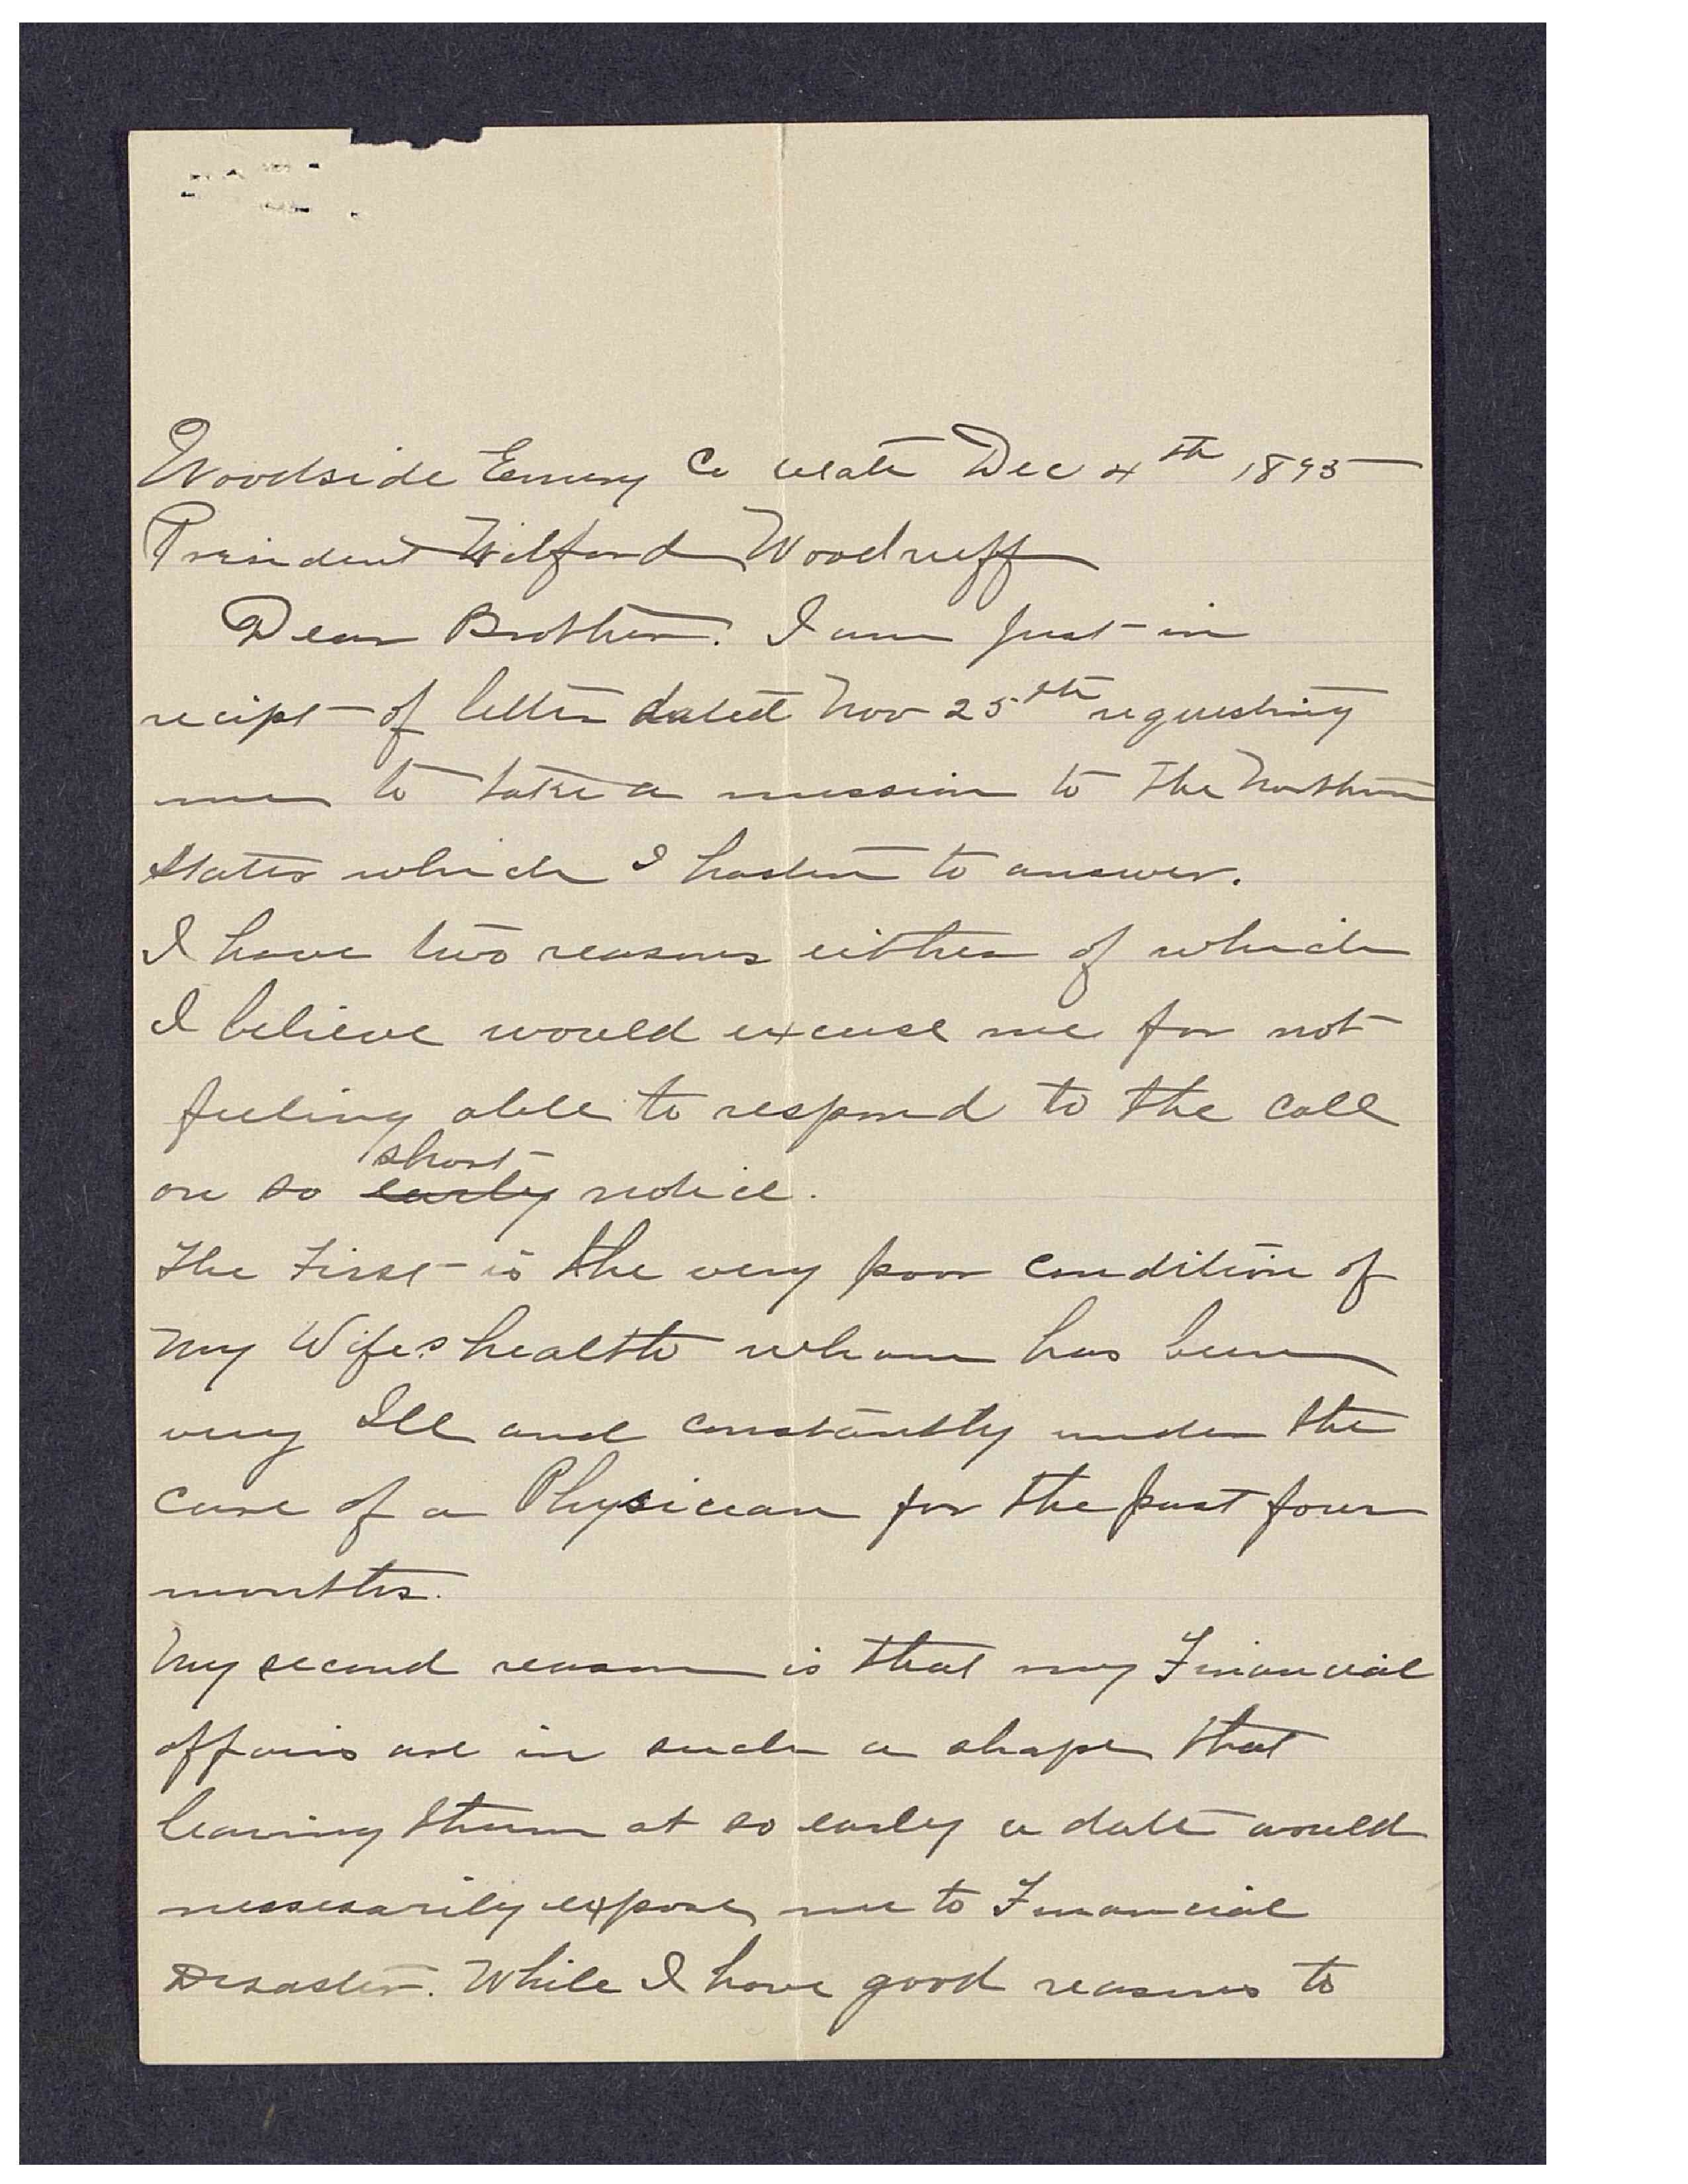 Woodside Emery Co Utah Dec 4th 1895
President Wilford Woodruff
Dear Brother. I am just in
recipt of letter dated Nov 25th requesting
me to take a mission to the Northern
States which I hasten to answer.
I have two reasons either of which
I believe would excuse me for not
feeling able to respond to the call
short
on so early notice.
The First is the very poor condition of
my Wifes health whom has been
very Ill and constantly under the
care of a Physician for the past four
months.
My second reason is that my Financial
affairs are in such a shape that
leaving them at so early a date would
nessesarily expose me to Financial
Disaster. While I have good reasons to